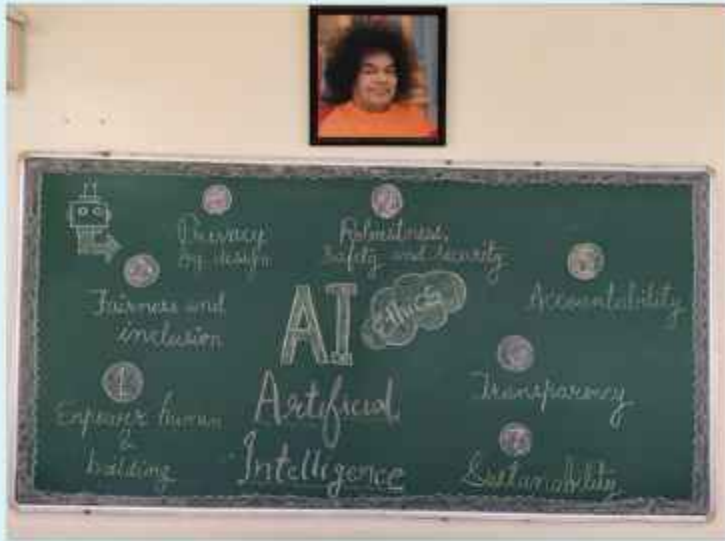 Privacy
by design
Robustness,
Safety and security
Fairness and
inclusion
A.I
Ethics
Accountability
1
Empower human
&
building
Artificial
Intelligence
Transparency
Sustanability